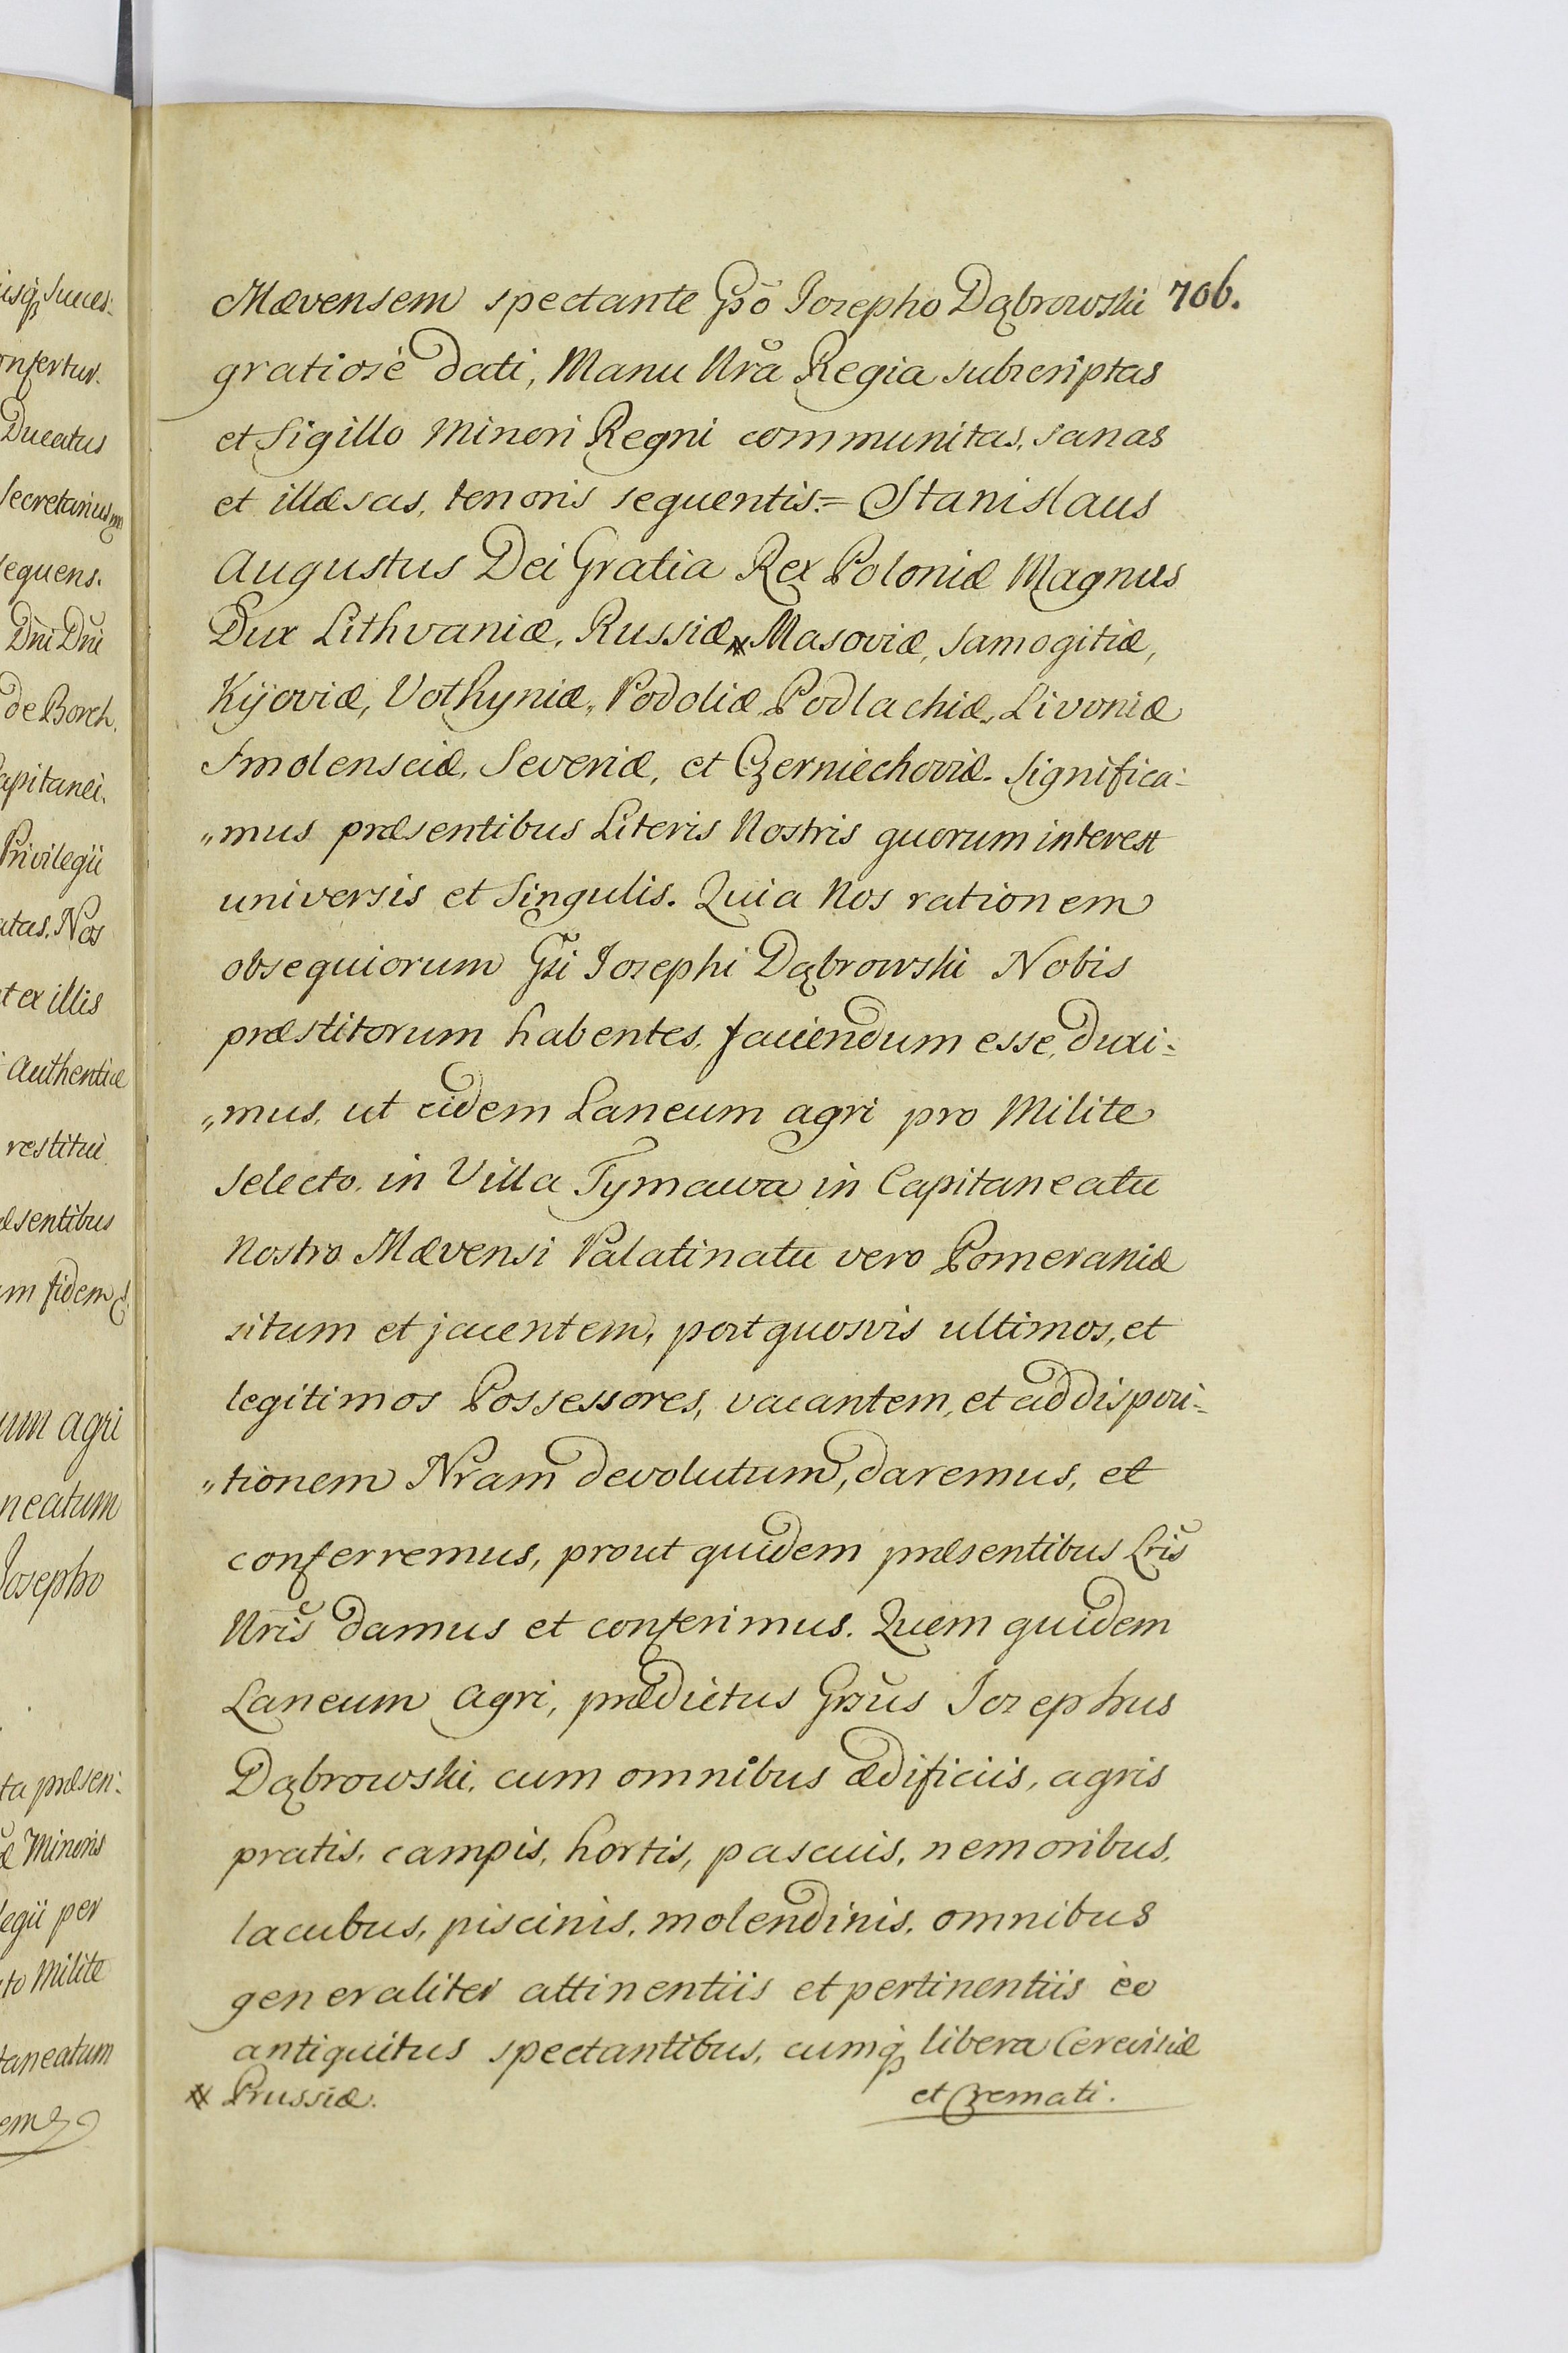 Mævensem spectante Gsõ Iozepho Dąbrowski 706.
gratiosè dati, Manu Nrã Regia subscriptas
et Sigillo Minori Regni communitas, sanas
et illæsas, tenoris sequentis.= Stanislaus
Augustus Dei Gratia Rex Poloniæ Magnus
Dux Lithvaniæ, Russiæ ※ Masoviæ, Samogitiæ,
Kijoviæ, Volhyniæ, Podoliæ, Podlachiæ, Livoniæ
Smolensciæ, Severiæ, et Czerniechoviæ. Significa:
„mus præsentibus Literis Nostris quorum interest
universis et Singulis. Quia Nos rationem
obsequiorum Gsi Iozephi Dąbrowski Nobis
præstitorum habentes, faciendum esse, duxi:
„mus, ut eidem Laneum agri pro Milite
selecto, in Villa Tymawa in Capitaneatu
Nostro Mævensi Palatinatu vero Pomeraniæ
situm et jacentem, post quosvis ultimos, et
legitimos Possessores, vacantem, et ad disposi:
„tionem Nram devolutum, daremus, et
conferremus, prout quidem præsentibus Lris
Nris damus et conferimus. Quem quidem
Laneum Agri, prædictus Grsus Iozephus
Dąbrowski, cum omnibus ædificiis, agris
pratis, campis, hortis, pascuis, nemoribus,
lacubus, piscinis, molendinis, omnibus
generaliter attinentiis et pertinentiis èo
antiquitus spectantibus, cumq̃ libera Cerevisiæ
※ Prussiæ. et Cremati.
isq̃ Succes:
onfertur.
Ducatus
Secretarius
sequens.
Dni Dni
de Borch,
apitanei.
Privilegii
atas. Nos
t ex illis
Authenticæ
restitui
æsentibus
m fidem
um agri
neatum
Josepho
ta præsen:
æ Minoris
legii per
to Milite
taneatum
em